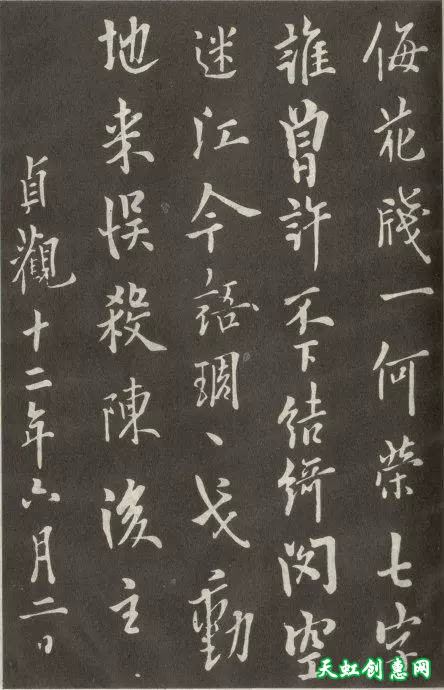 侮花牋一何榮七字
誰曾許不下結綺閣空
迷江令語琱戈動
地来悮殺陳後主
貞觀十二年六月二日
天虹创惠网